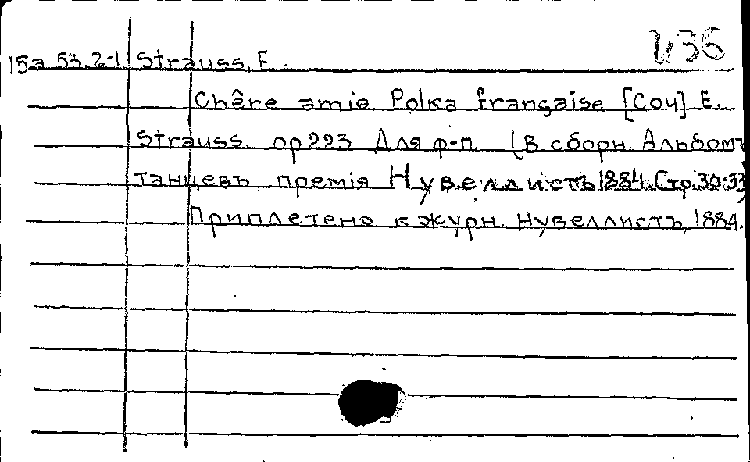 436
15а 53.2-1 Strauss, E.
Chêre amie Polka française [Соч] E.
Strauss. op 223 Для ф-п. (В сборн. Альбомъ
танцевъ премія Нувеллистъ 1884. Стр. 30-33)
Приплетено к журн. Нувеллистъ, 1884.